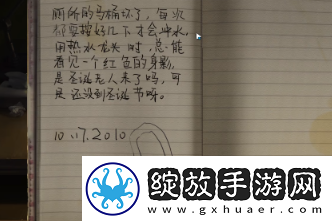 厕所的马桶坏了，每次
都要按好几下才会冲水，
用热水龙头时，总能
看见一个红色的身影，
是圣诞老人来了吗，可
是还没到圣诞节呀。
10.17.2010
绽放手游网
www.gxhuaer.com